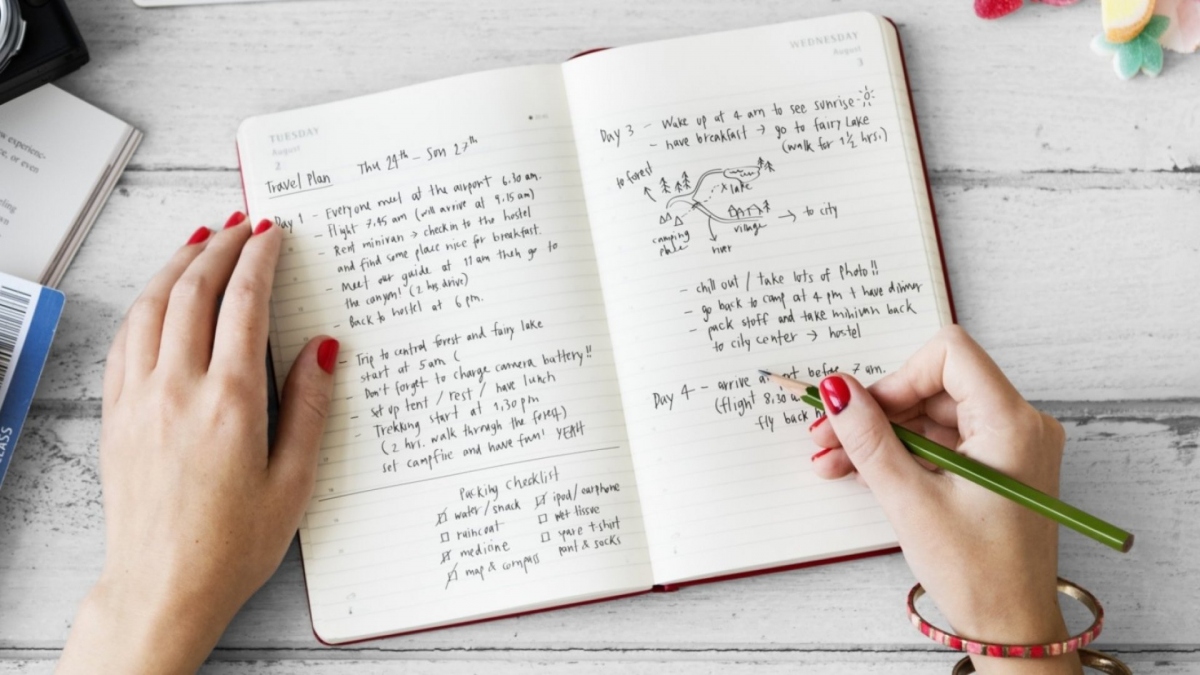 w experienc-
ce, or even
CLASS
TUESDAY
August
2
Travel Plan Thu 24th - Sun 27th
Day 1 - Everyone meet at the airport 6.30 am.
- Flight 7.45 am (will arrive at 9.15 am)
- Rent minivan → checkin to the hostel
and find some place nice for breakfast.
- Meet our guide at 11 am then go to
the canyon! (2 hrs drive)
- Back to hostel at 6 pm.
- Trip to central forest and fairy lake
start at 5am (
- Don't forget to charge camera battery!!
- Set up tent / rest / have lunch
- Trekking start at 1,30 pm
(2 hrs. walk through the forest)
set campfire and have fun! YEAH
Packing Checklist
water / snack
raincoat
medicine
map & compass
ipod / earphone
wet tissue
spare t-shirt
pant & socks
WEDNESDAY
August
3
Day 3 - Wake up at 4 am to see sunrise
- have breakfast → go to fairy Lake
(walk for 1 1/2 hrs.)
to forest
x lake
camping
place
river
village
→ to city
- chill out / take lots of photo!!
- go back to camp at 4 pm + have dinner
- pack stuff and take minivan back
to city center → hostel
Day 4 - arrive before 7 am.
(flight 8,30
fly back